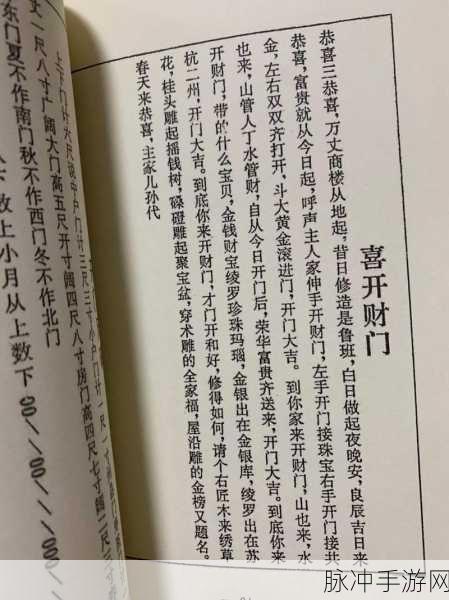 喜开财门
恭喜三恭喜，万丈商楼从地起，昔日修造是鲁班，白日做起夜晚安，良辰吉日来
恭喜，富贵就从今日起，呼声主人家伸手开财门，左手开门接珠宝右手开门接共
金，左右双双齐打开，斗大黄金滚进门，开门大吉。到你家来开财门，山也来，水
也来，山管人丁水管财，自从今日开门后，荣华富贵齐送来，开门大吉。到底你来
开财门，带的什么宝贝，金钱财宝绫罗珍珠玛瑙，金银出在金银库，绫罗出在苏
杭二州，开门大吉。到底你来开财门，才门开和好，修得如何，请个右匠木来绣草
花，桂头雕起摇钱树，磉磴雕起聚宝盆，穿术雕的全家福，屋沿雕的金榜又题名。
春天来恭喜，主家儿孙代
丈一尺八寸广阔大门高五尺开寸阔四尺八寸房门高四尺七寸阔二尺三
东门夏不作南门秋不作西门冬不作北门
数上小月从上数下
脉冲手游网